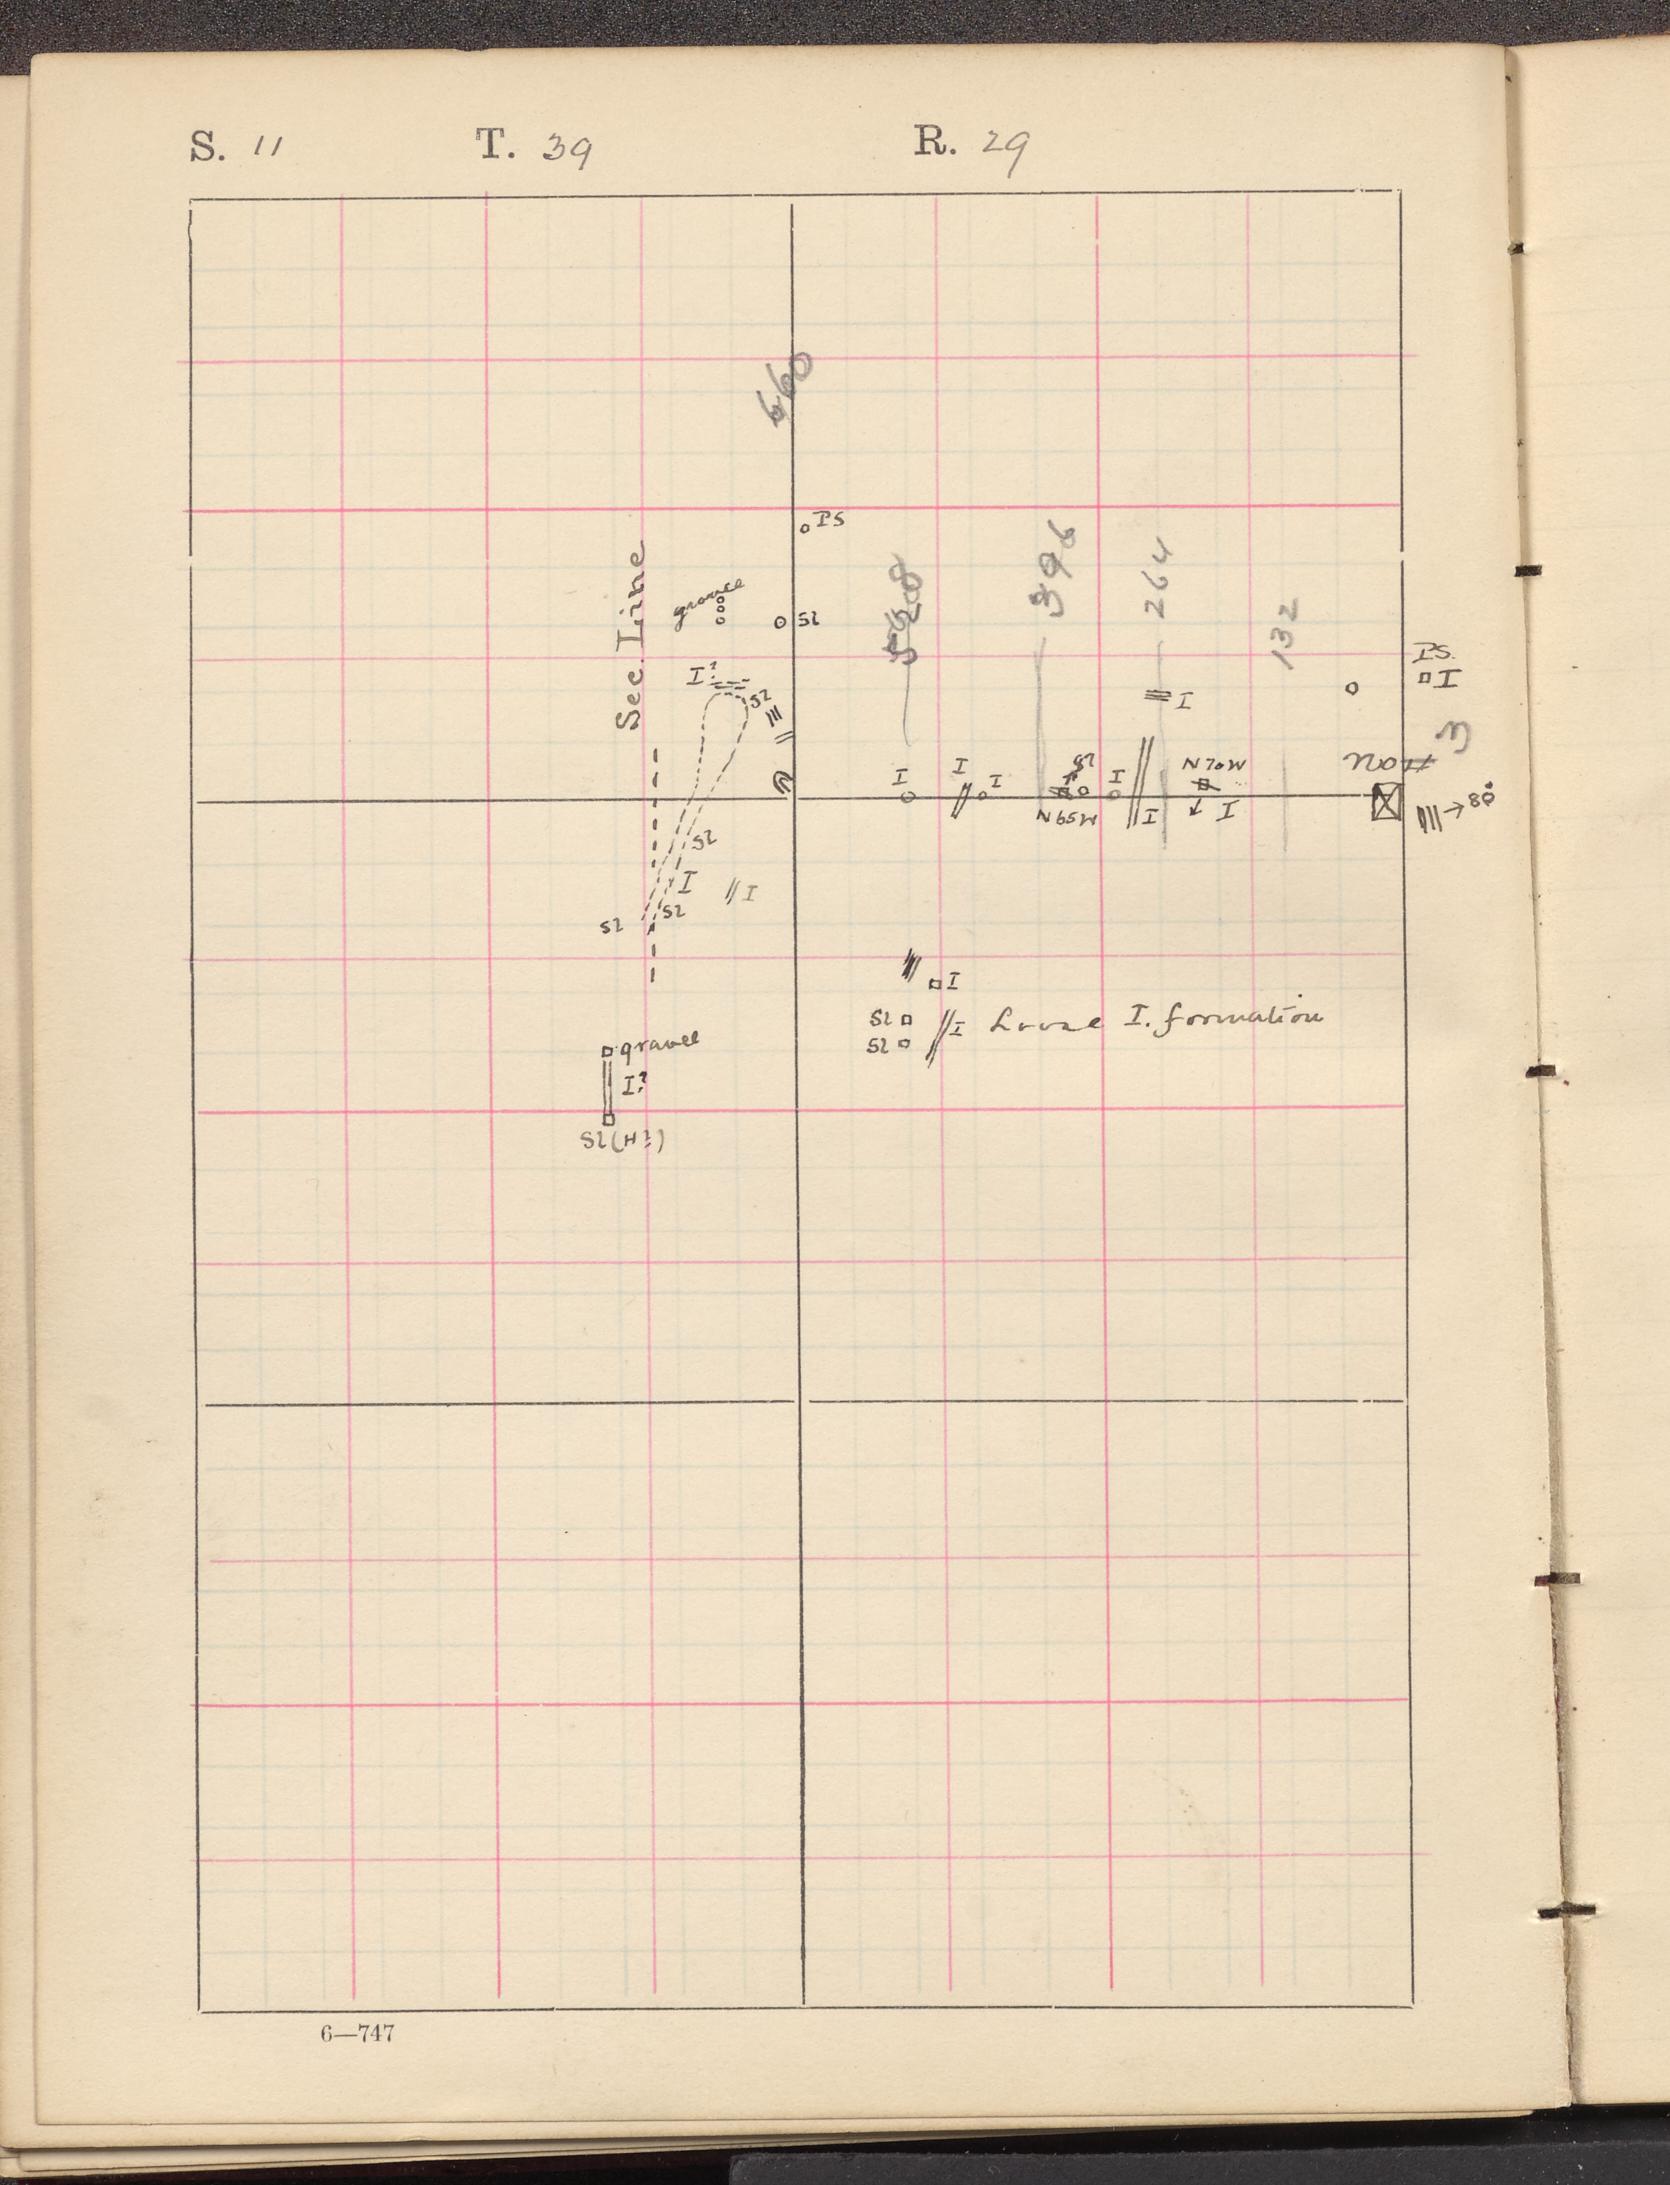 S. 11 T. 39 R. 29
660
PS
Sec. Line
gravel
Sl
528
396
264
132
PS.
I
I?
Sl
I
3
I
I
I
Sl
I
N70W
No #
N65W
I
I
80°
Sl
I
I
Sl
Sl
I
Sl
I
Loose I. formation
Sl
gravel
I?
Sl (H?)
6—747